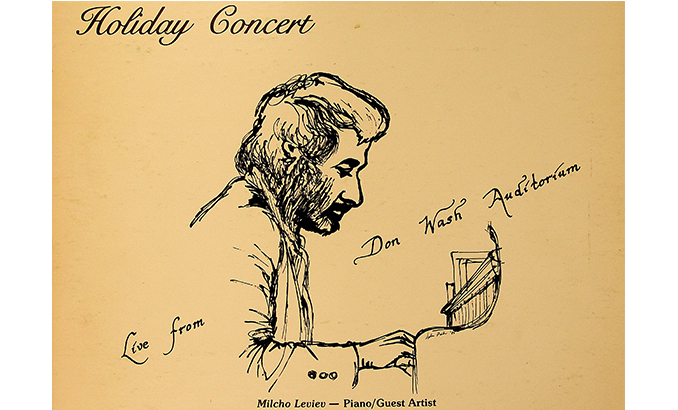 Holiday Concert
Live from
Don Wash Auditorium
Milcho Leviev — Piano/Guest Artist